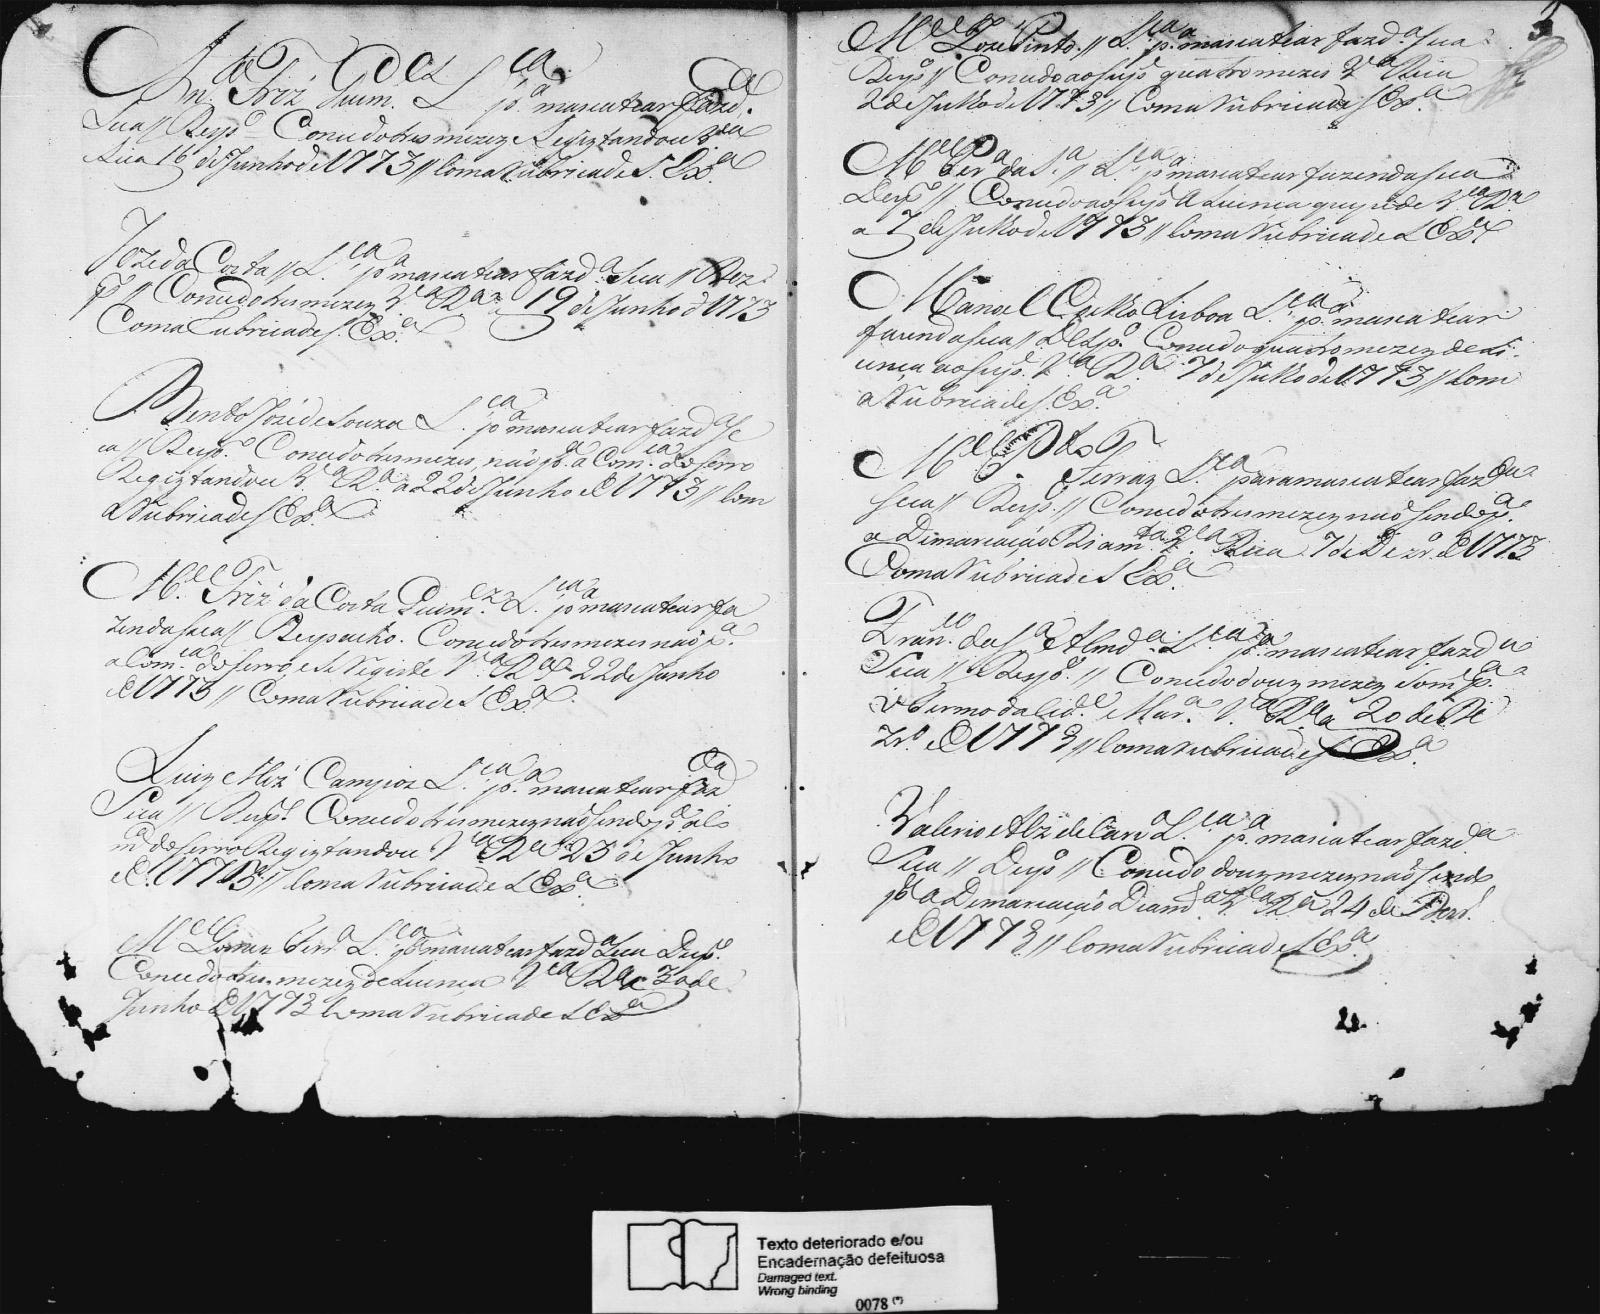 An.to Friz Guim.es L.ca p.a mascatear fazd.a
Seca // Desp.o Concedo tres mezes e Registandoce V.a
Rica 16 de Junho de 1773 // Com a Rubrica de S. Ex.a
Jozé da Costa // L.ca p.a mascatear fazd.a Seca // Dez
p.o // Concedo tres mezes V.a R.a a 19 de Junho d 1773
Com a Rubrica de S. Ex.a
Bento Jozé de Souza L.ca p.a mascatear fazd.a Se
ca // Desp.o Concedo tres mezes, não p.a a Com.ca do Serro
Registandoce V.a R.a a 22 de Junho de 1773 // Com
a Rubrica de S Ex.a
M.el Friz da Costa Guim.es L.ca p.a mascatear fa
zenda seca // Despacho. Concedo tres mezes não p.a
a Com.ca do Serro, e se Registe V.a R.a 22 de Junho
de 1773 // Com a Rubrica de S Ex.a
Luiz Miz Campos L.ca p.a mascatear fazd.a
Seca // Desp.o Concedo tres mezes não sendo p.a a Co
m.ca do Serro Registandoce V.a R.a 23 de Junho
de 1773 // Com a Rubrica de S Ex.a
M.el Ferr.a L.ca p.a mascatear fazd.a Seca Desp.o
Concedo tres mezes de Licença V.a R.a 30 de
Junho de 1773 Com a Rubrica de S Ex.a
3
M.el Joze Pinto // L.ca p.a mascatear fazd.a seca
Desp.o // Concedo ao Sup.e quatro mezes V.a Rica
2 de Julho de 1773 // Com a Rubrica de S Ex.a
M.el Per.a da S.a // L.ca p.a mascatear fazenda seca
Desp.o // Concedo ao Sup.e a Licença que pede V.a R.a
a 7 de Julho de 1773 // Com a Rubrica de S Ex.a
Manoel Coelho Lisboa L.ca p.a mascatear
fazenda seca // Desp.o Concedo quatro mezes de Li
cença ao Sup.e V.a R.a 7 de Julho de 1773 // Com
a Rubrica de S. Ex.a
M.el Ferraz L.ca para mascatear fazd.a
seca // Desp.o // Concedo tres mezes não sendo p.a
a Demarcação Diam.ta V.a Rica 7 de Dezr.o de 1773
Com a Rubrica de S Ex.a
Fran.co da S.a e Almd.a L.ca p.a mascatear fazd.a
Seca // Desp.o // Concedo douz mezes som.e p.a
o termo da Cid.e Mar.a V.a R.a a 20 de De
zr.o de 1773 // Com a Rubrica de S Ex.a
Valerio Alz de Carv.o L.ca p.a mascatear fazd.a
Seca // Desp.o // Concedo douz mezes não sendo
p.a a Demarcação Diamd.a V.a R.a 24 de Dezr.o
de 1773 // Com a Rubrica de S Ex.a
Texto deteriorado e/ou
Encadernação defeituosa
Damaged text.
Wrong binding
0078 (*)